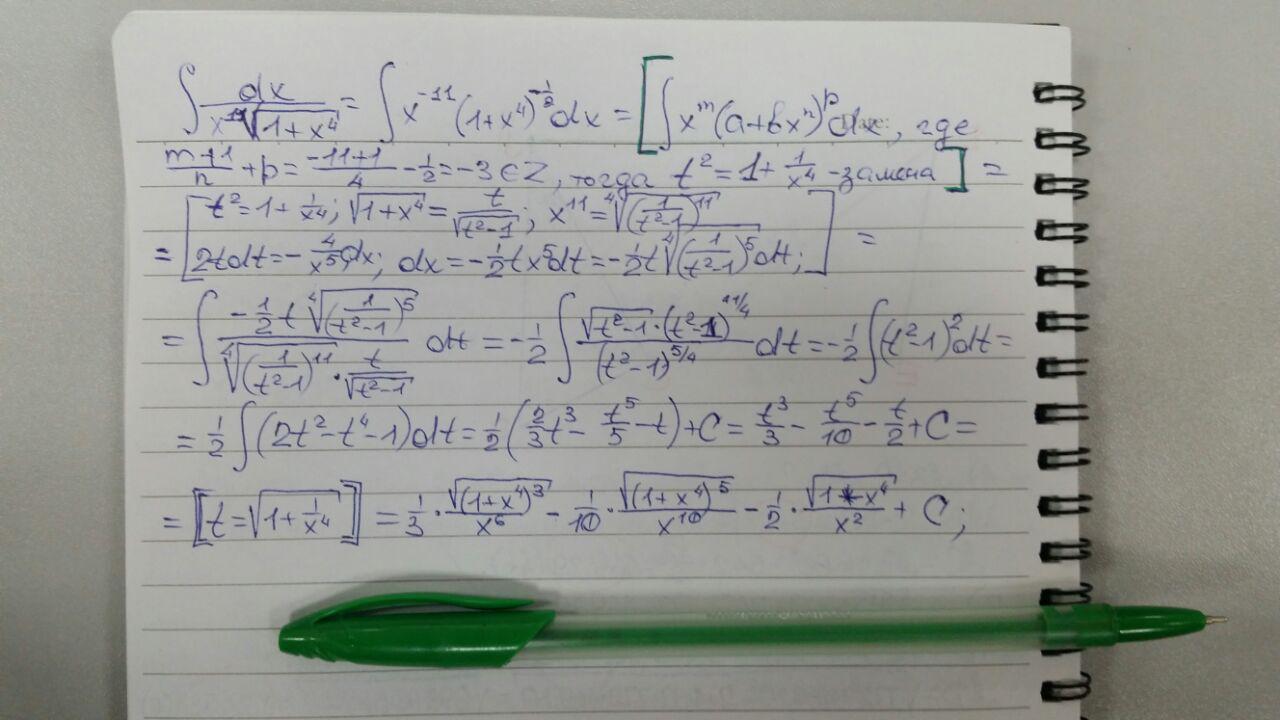 ∫ dx/(x¹¹√(1+x⁴)) = ∫ x⁻¹¹(1+x⁴)^(-1/2) dx = [∫ xᵐ(a+bxⁿ)ᵖ dx, где
(m+1)/n + p = (-11+1)/4 - 1/2 = -3 ∈ Z, тогда t² = 1 + 1/x⁴ - замена] =
= [t² = 1 + 1/x⁴; √(1+x⁴) = t/√(t²-1); x¹¹ = ⁴√((1/(t²-1))¹¹)
2tdt = -4/x⁵ dx; dx = -1/2 tx⁵dt = -1/2 t ⁴√((1/(t²-1))⁵) dt;] =
= ∫ (-1/2 t ⁴√((1/(t²-1))⁵))/(⁴√((1/(t²-1))¹¹) · t/√(t²-1)) dt = -1/2 ∫ (√(t²-1) · (t²-1)^(11/4))/((t²-1)^(5/4)) dt = -1/2 ∫(t²-1)² dt =
= 1/2 ∫(2t²-t⁴-1)dt = 1/2 (2/3 t³ - t⁵/5 - t) + C = t³/3 - t⁵/10 - t/2 + C =
= [t = √(1 + 1/x⁴)] = 1/3 · √((1+x⁴)³)/x⁶ - 1/10 · √((1+x⁴)⁵)/x¹⁰ - 1/2 · √(1+x⁴)/x² + C;